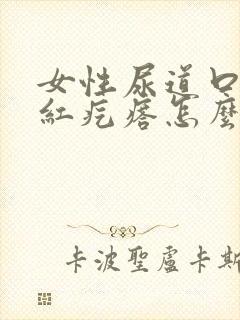 女性尿道口
紅疙瘩怎麼
卡波聖盧卡斯